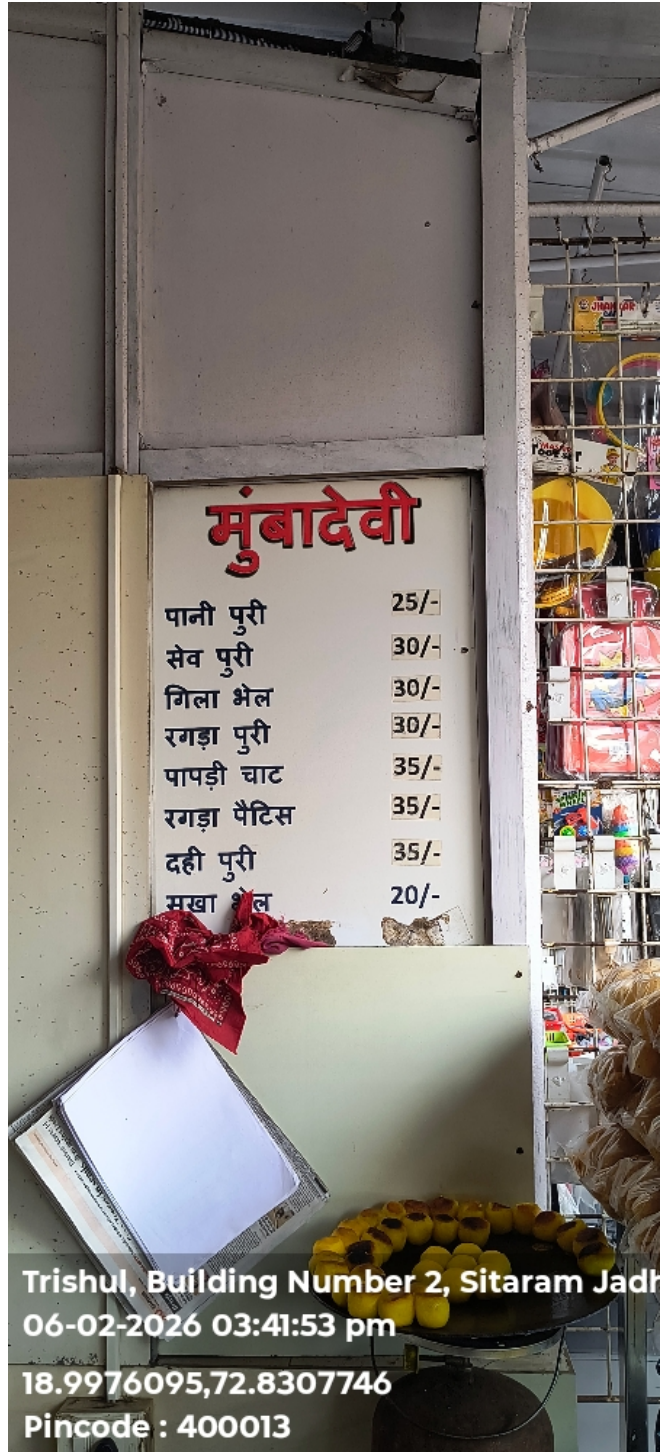 मुंबादेवी
पानी पुरी 25/-
सेव पुरी 30/-
गिला भेल 30/-
रगड़ा पुरी 30/-
पापड़ी चाट 35/-
रगड़ा पैटिस 35/-
दही पुरी 35/-
सुखा भेल 20/-
Trishul, Building Number 2, Sitaram Jadh
06-02-2026 03:41:53 pm
18.9976095,72.8307746
Pincode : 400013